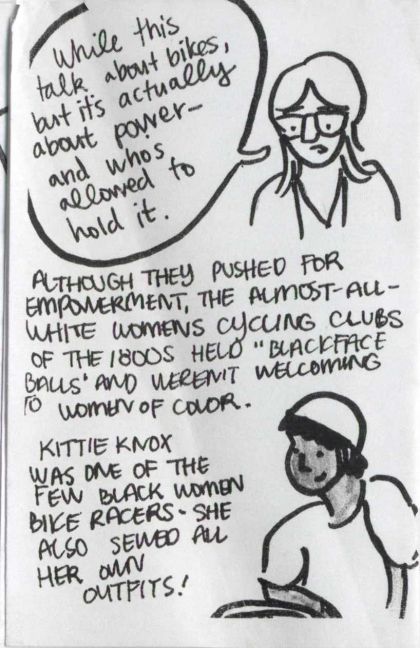 While this
talk about bikes,
but it's actually
about power—
and whos
allowed to
hold it.
ALTHOUGH THEY PUSHED FOR
EMPOWERMENT, THE ALMOST-ALL-
WHITE WOMENS CYCLING CLUBS
OF THE 1800S HELD "BLACKFACE
BALLS" AND WEREN'T WELCOMING
TO WOMEN OF COLOR.
KITTIE KNOX
WAS ONE OF THE
FEW BLACK WOMEN
BIKE RACERS - SHE
ALSO SEWED ALL
HER OWN
OUTFITS!